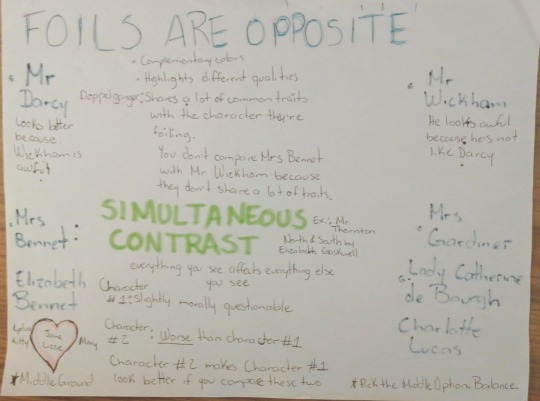 FOILS ARE OPPOSITE
• Complementary colors
• Highlights different qualities
Doppelganger: Shares a lot of common traits
with the character they're
foiling.
You don't compare Mrs Bennet
with Mr Wickham because
they don't share a lot of traits.
• Mr
Darcy
Looks better
because
Wickham is
awful
• Mr
Wickham
He looks awful
because he's not
like Darcy
SIMULTANEOUS
CONTRAST
Ex: Mr
Thornton
North & South by
Elizabeth Gaskwell
everything you see affects everything else
you see
• Mrs
Bennet
Elizabeth
Bennet
Mrs
Gardiner
Lady Catherine
de Bourgh
Charlotte
Lucas
Character
#1: Slightly morally questionable
Character
#2: Worse than character #1
Character #2 makes Character #1
look better if you compare these two
Lydia
Kitty
Jane
Mary
*Middle Ground
*Pick the Middle Option. Balance